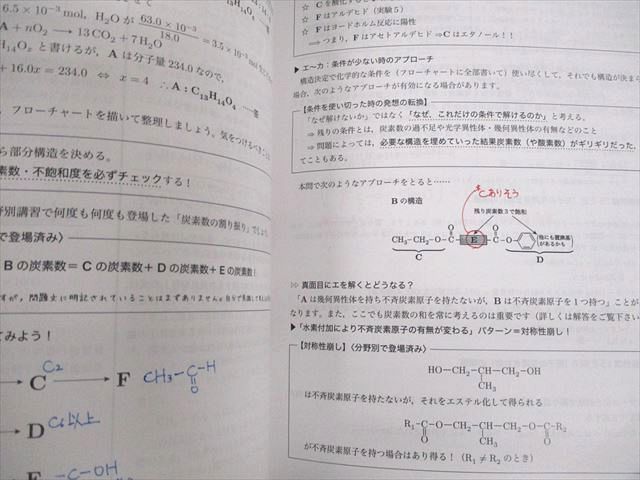 6.5 × 10⁻³ mol, H₂O が 63.0 × 10⁻³ / 18.0 = 3.5 × 10⁻³
A + nO₂ ⟶ 13CO₂ + 7H₂O
H₁₄Oₓ と書けるが, A は分子量 234.0 なので,
+ 16.0x = 234.0 ⇔ x = 4 ∴ A : C₁₃H₁₄O₄ ……答
フローチャートを描いて整理しましょう。気をつけるべき
ら部分構造を決める。
素数・不飽和度を必ずチェックする!
野別講習で何度も何度も登場した「炭素数の割り振り」でし
で登場済み〉
B の炭素数 = C の炭素数 + D の炭素数 + E の炭素数!
すが, 問題文に明記されていることはまずありません
てみよう!
C C₂ ⟶ F CH₃-C-H
O
D C₆以上
-C-OH
☆ C を酸化すると
☆ F はアルデヒド(実験5)
☆ F はヨードホルム反応に陽性
⇒ つまり, F はアセトアルデヒド ⇒ C はエタノール!!
▶ エ~カ:条件が少ない時のアプローチ
構造決定で化学的な条件を(フローチャートに全部書いて)使い尽くして, それでも構造が決まら
場合, 次のようなアプローチが有効になる場合があります。
【条件を使い切った時の発想の転換】
「なぜ解けないか」ではなく「なぜ, これだけの条件で解けるのか」と考える。
⇒ 残りの条件とは, 炭素数の過不足や光学異性体・幾何異性体の有無などのこと
⇒ 問題によっては, 必要な構造を埋めていった結果炭素数(や酸素数)がギリギリだった,
てこともある。
本問で次のようなアプローチをとると……
B の構造
*Cありそう
残り炭素数 3 で飽和
CH₃-CH₂-O-C E C-O
O O
他にも置換基があるかも
C D
≫ 真面目にエを解くとどうなる?
「A は幾何異性体を持ち不斉炭素原子を持たないが, B は不斉炭素原子を 1 つ持つ」ことが
なります。また, ここでも炭素数の和を常に考えるのは重要です(詳しくは解答をご覧下さい
▶「水素付加により不斉炭素原子の有無が変わる」パターン=対称性崩し!
【対称性崩し】〈分野別で登場済み〉
HO-CH₂-CH-CH₂-OH
CH₃
は不斉炭素原子を持たないが, それをエステル化して得られる
R₁-C-O-CH₂-CH-CH₂-O-C-R₂
O CH₃ O
が不斉炭素原子を持つ場合はあり得る!(R₁ ≠ R₂ のとき)